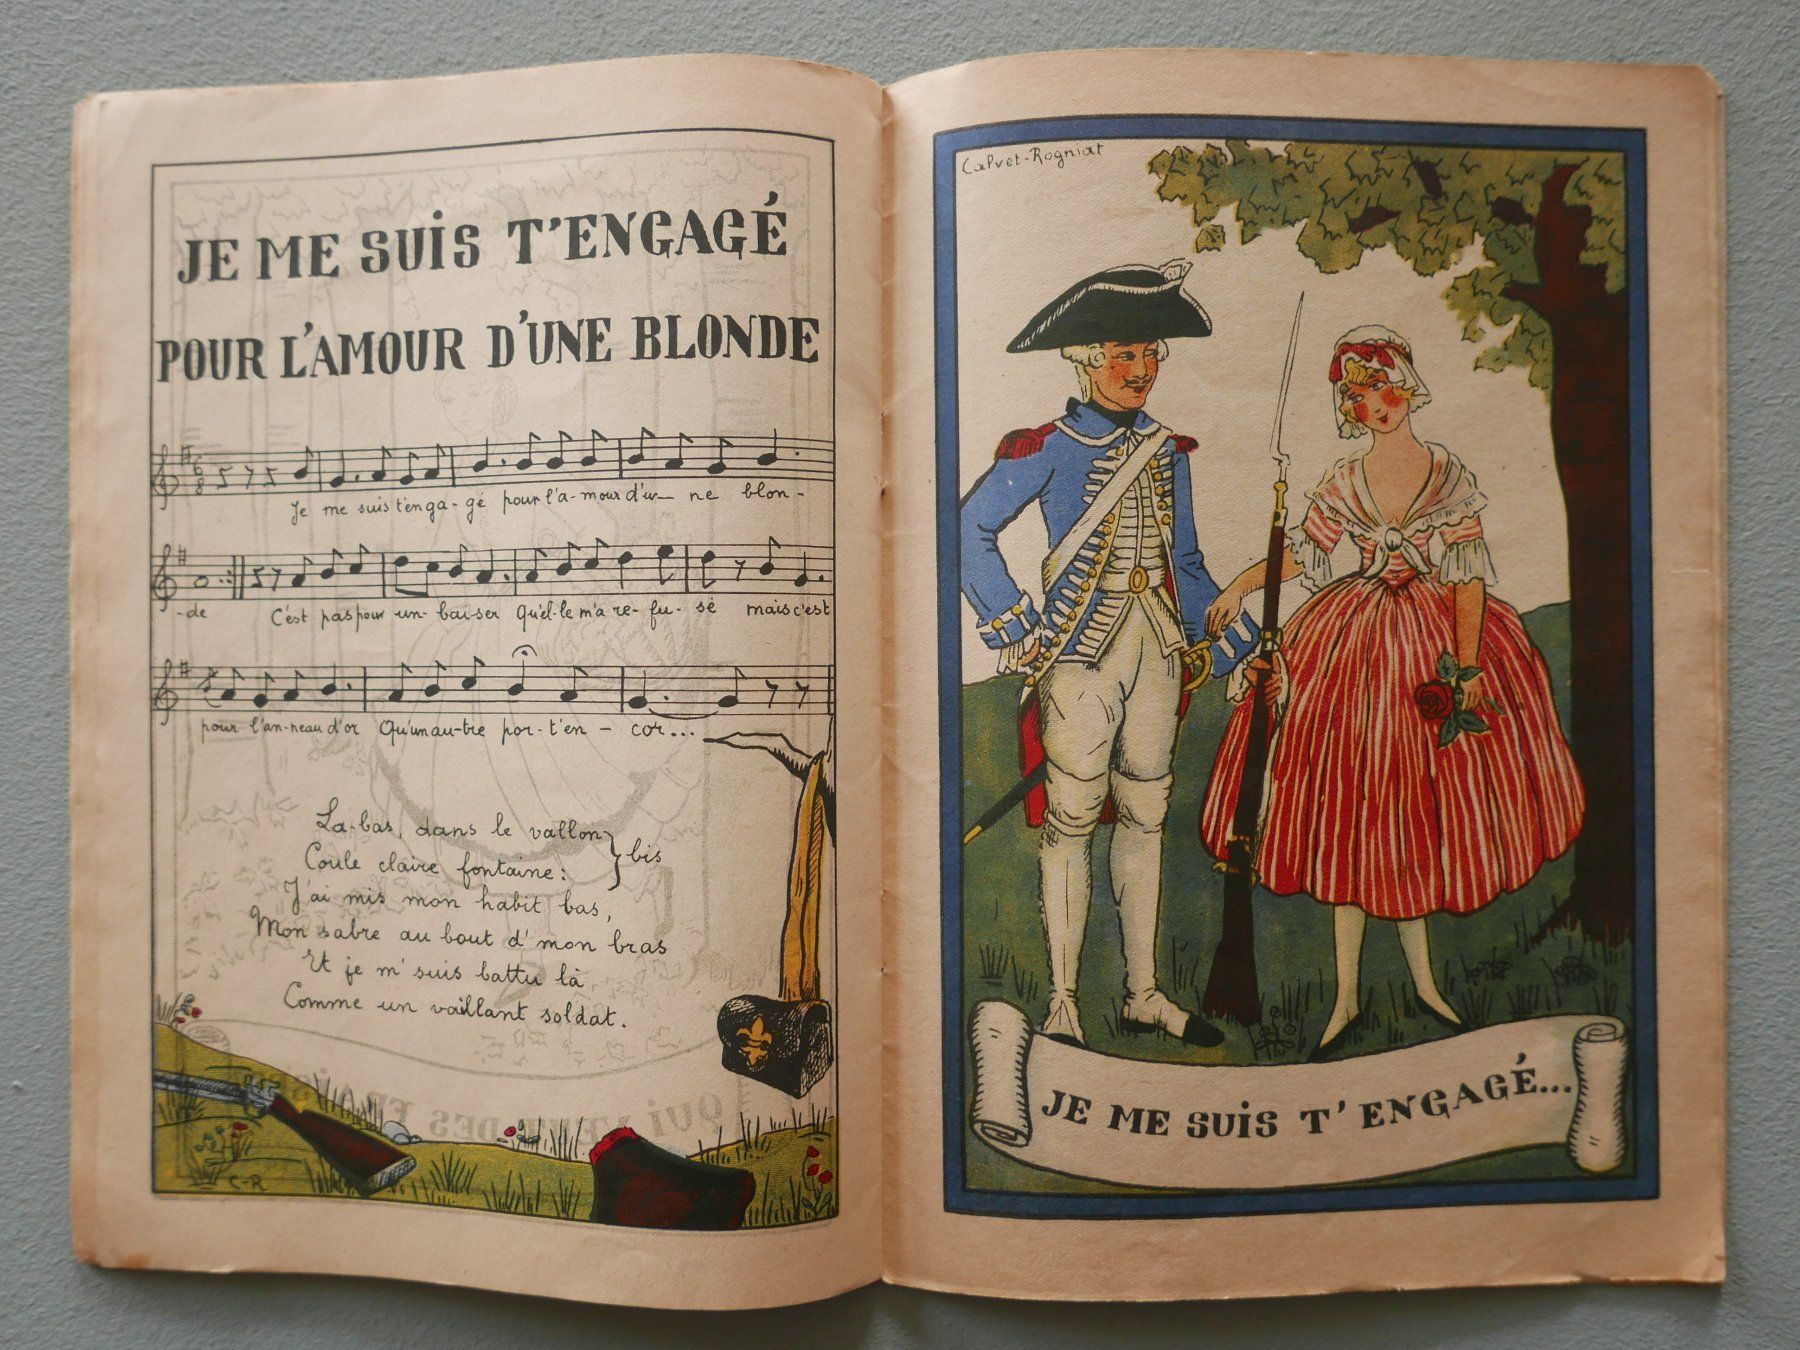 JE ME SUIS T'ENGAGÉ
POUR L'AMOUR D'UNE BLONDE
Je me suis t'enga-gé pour l'a-mour d'u- ne blon-
-de C'est pas pour un- bai-ser Qu'el-le m'a re-fu-sé mais c'est
pour l'an-neau d'or Qu'un au-tre por-t'en - cor...
La-bas, dans le vallon
Coule claire fontaine: } bis
J'ai mis mon habit bas,
Mon sabre au bout d'mon bras
Et je m'suis battu là
Comme un vaillant soldat.
C-R
Calvet-Rogniat
JE ME SUIS T'ENGAGÉ...